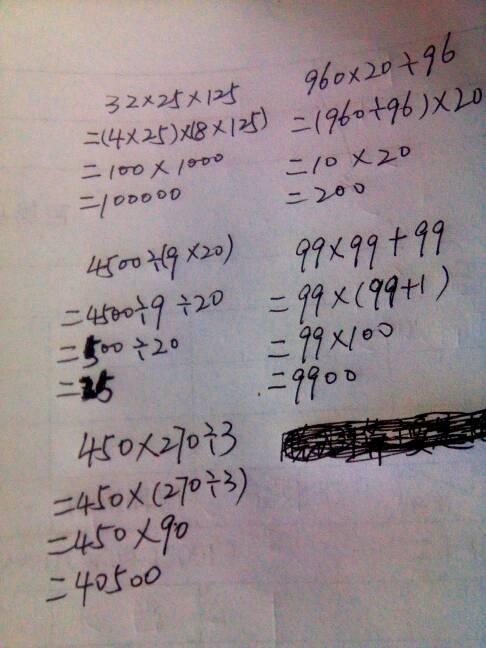 32×25×125
=(4×25)×(8×125)
=100×1000
=100000
960×20÷96
=(960÷96)×20
=10×20
=200
4500÷(9×20)
=4500÷9÷20
=500÷20
=25
99×99+99
=99×(99+1)
=99×100
=9900
450×270÷3
=450×(270÷3)
=450×90
=40500